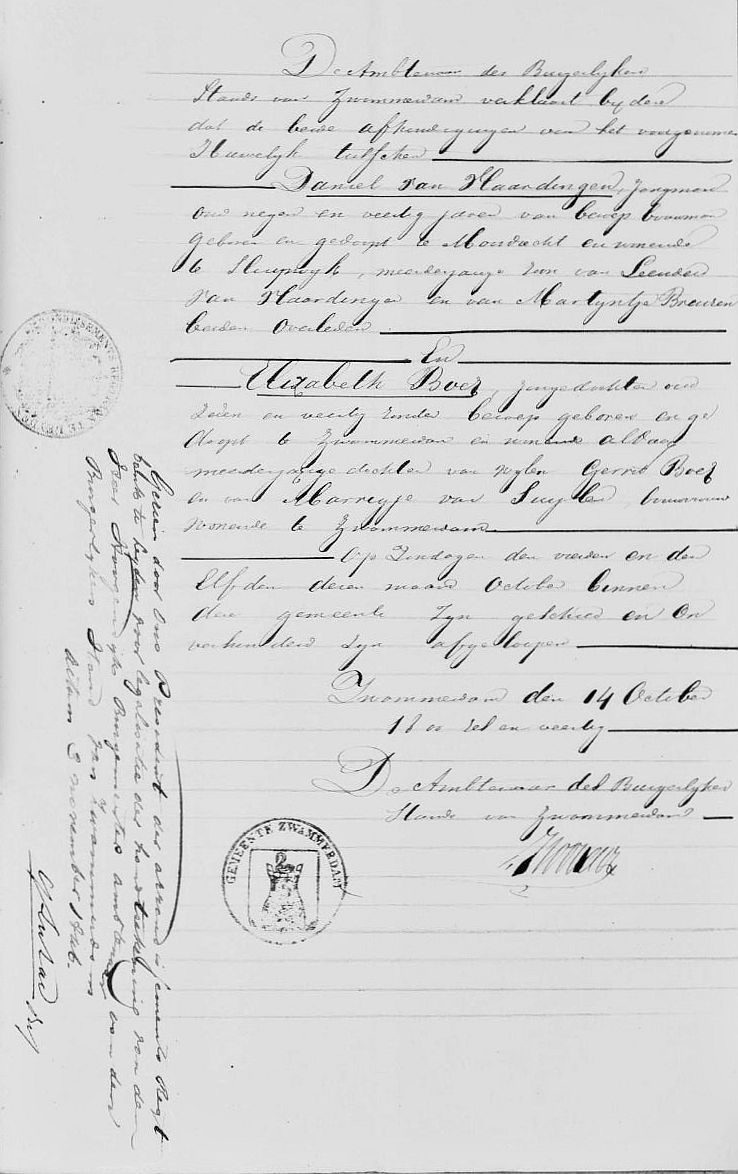 De Ambtenaar des Burgerlyken
Stands van Zwammerdam verklaart by deze
dat de beide afkondigingen van het voorgenomen
Huwelyk tusschen
Daniel van Haardingen, Jongman
oud negen en veertig jaren van beroep bouwman
geboren en gedoopt te Moordrecht en wonende
te Sluipwyk, meerderjarige zoon van Leendert
van Haardingen en van Martyntje Breuren
beiden overleden
En
Elizabeth Boer, jongedochter oud
zeven en veertig zonder beroep geboren en ge
doopt te Zwammerdam en wonende aldaar
meerderjarige dochter van wylen Gerrit Boer
en van Marregje van Tuyl, bouwvrouw
wonende te Zwammerdam
Op Zondagen den vierden en den
Elfden dezer maand October binnen
deze gemeente zyn geschied en on
verhinderd zyn afgeloopen
Zwammerdam den 14 October
1800 zes en veertig
De Ambtenaar des Burgerlyken
Stands van Zwammerdam
GEMEENTE ZWAMMERDAM
Gezien door ons President der arrondissements Regt
bank te Leyden voor legalisatie der handteekening van den
Heer Burgemeester ambtenaar van den
Burgerlyken Stand van Zwammerdam
3 november 1846.